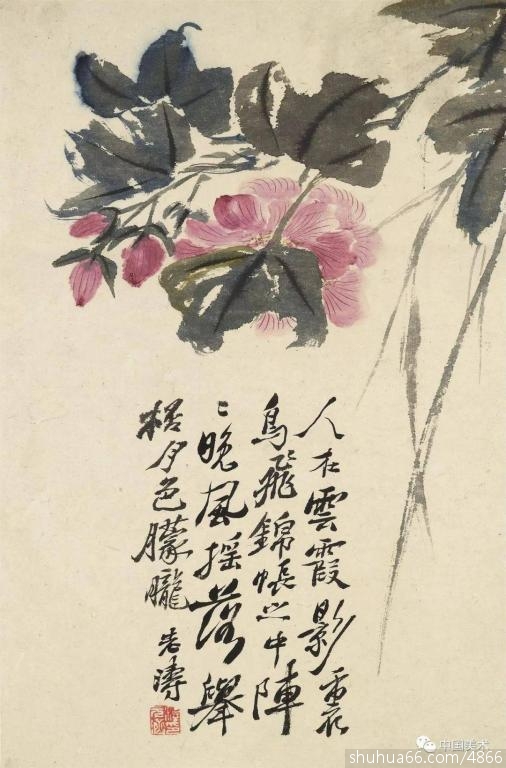 人在雲霞影裏
鳥飛錦帳之中陣
〻晚風搖落舉
桮夕色朦朧 老濤
中国美术
shuhua66.com/4866